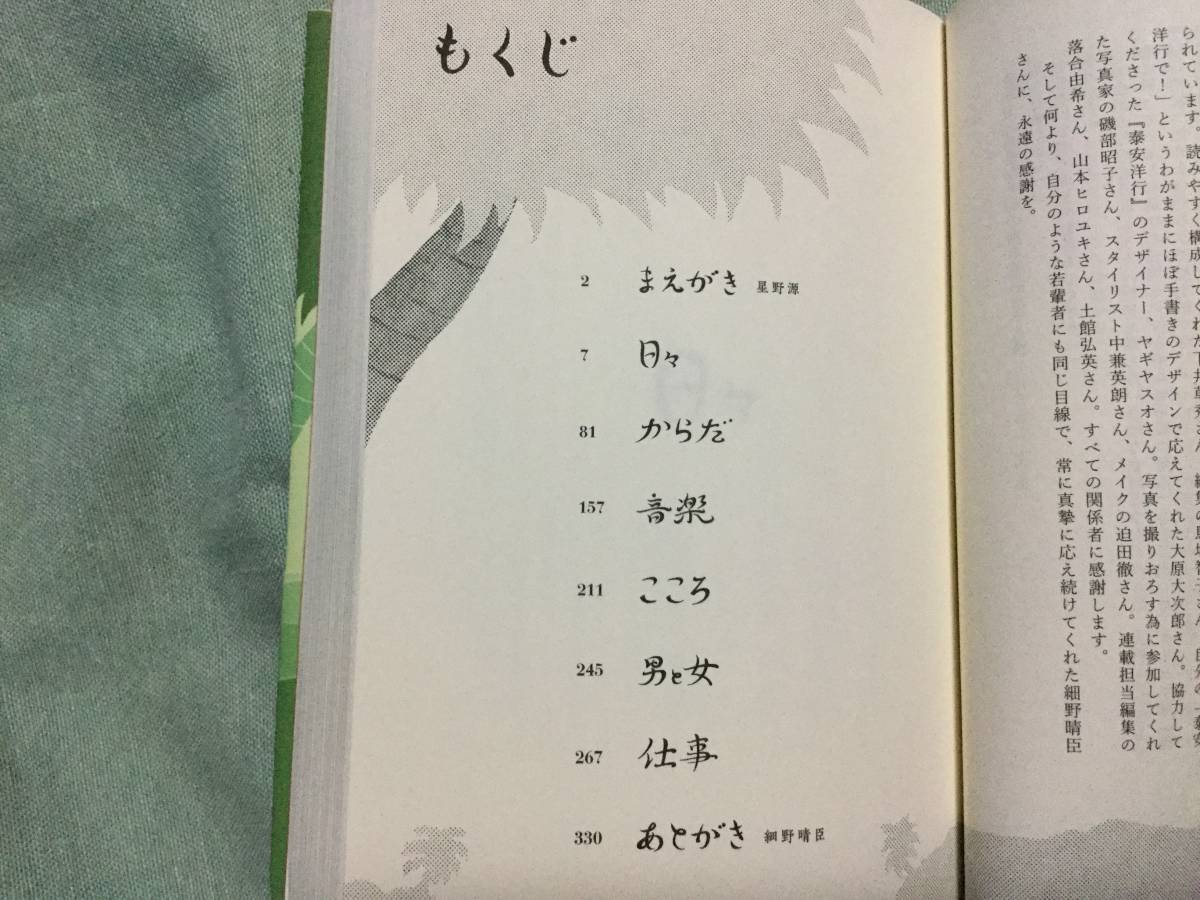 られています。読みやすく構成してくれた
洋行で!」というわがままにほぼ手書きのデザインで応えてくれた大原大次郎さん。協力して
くださった『泰安洋行』のデザイナー、ヤギヤスオさん。写真を撮りおろす為に参加してくれ
た写真家の磯部昭子さん、スタイリスト中兼英朗さん、メイクの迫田徹さん。連載担当編集の
落合由希さん、山本ヒロユキさん、土館弘英さん。すべての関係者に感謝します。
そして何より、自分のような若輩者にも同じ目線で、常に真摯に応え続けてくれた細野晴臣
さんに、永遠の感謝を。
もくじ
2 まえがき 星野源
7 日々
81 からだ
157 音楽
211 こころ
245 男と女
267 仕事
330 あとがき 細野晴臣